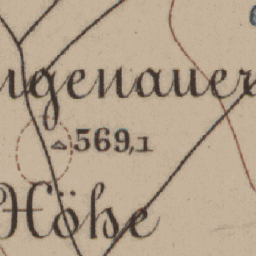 ngenauer
569,1
Höhe